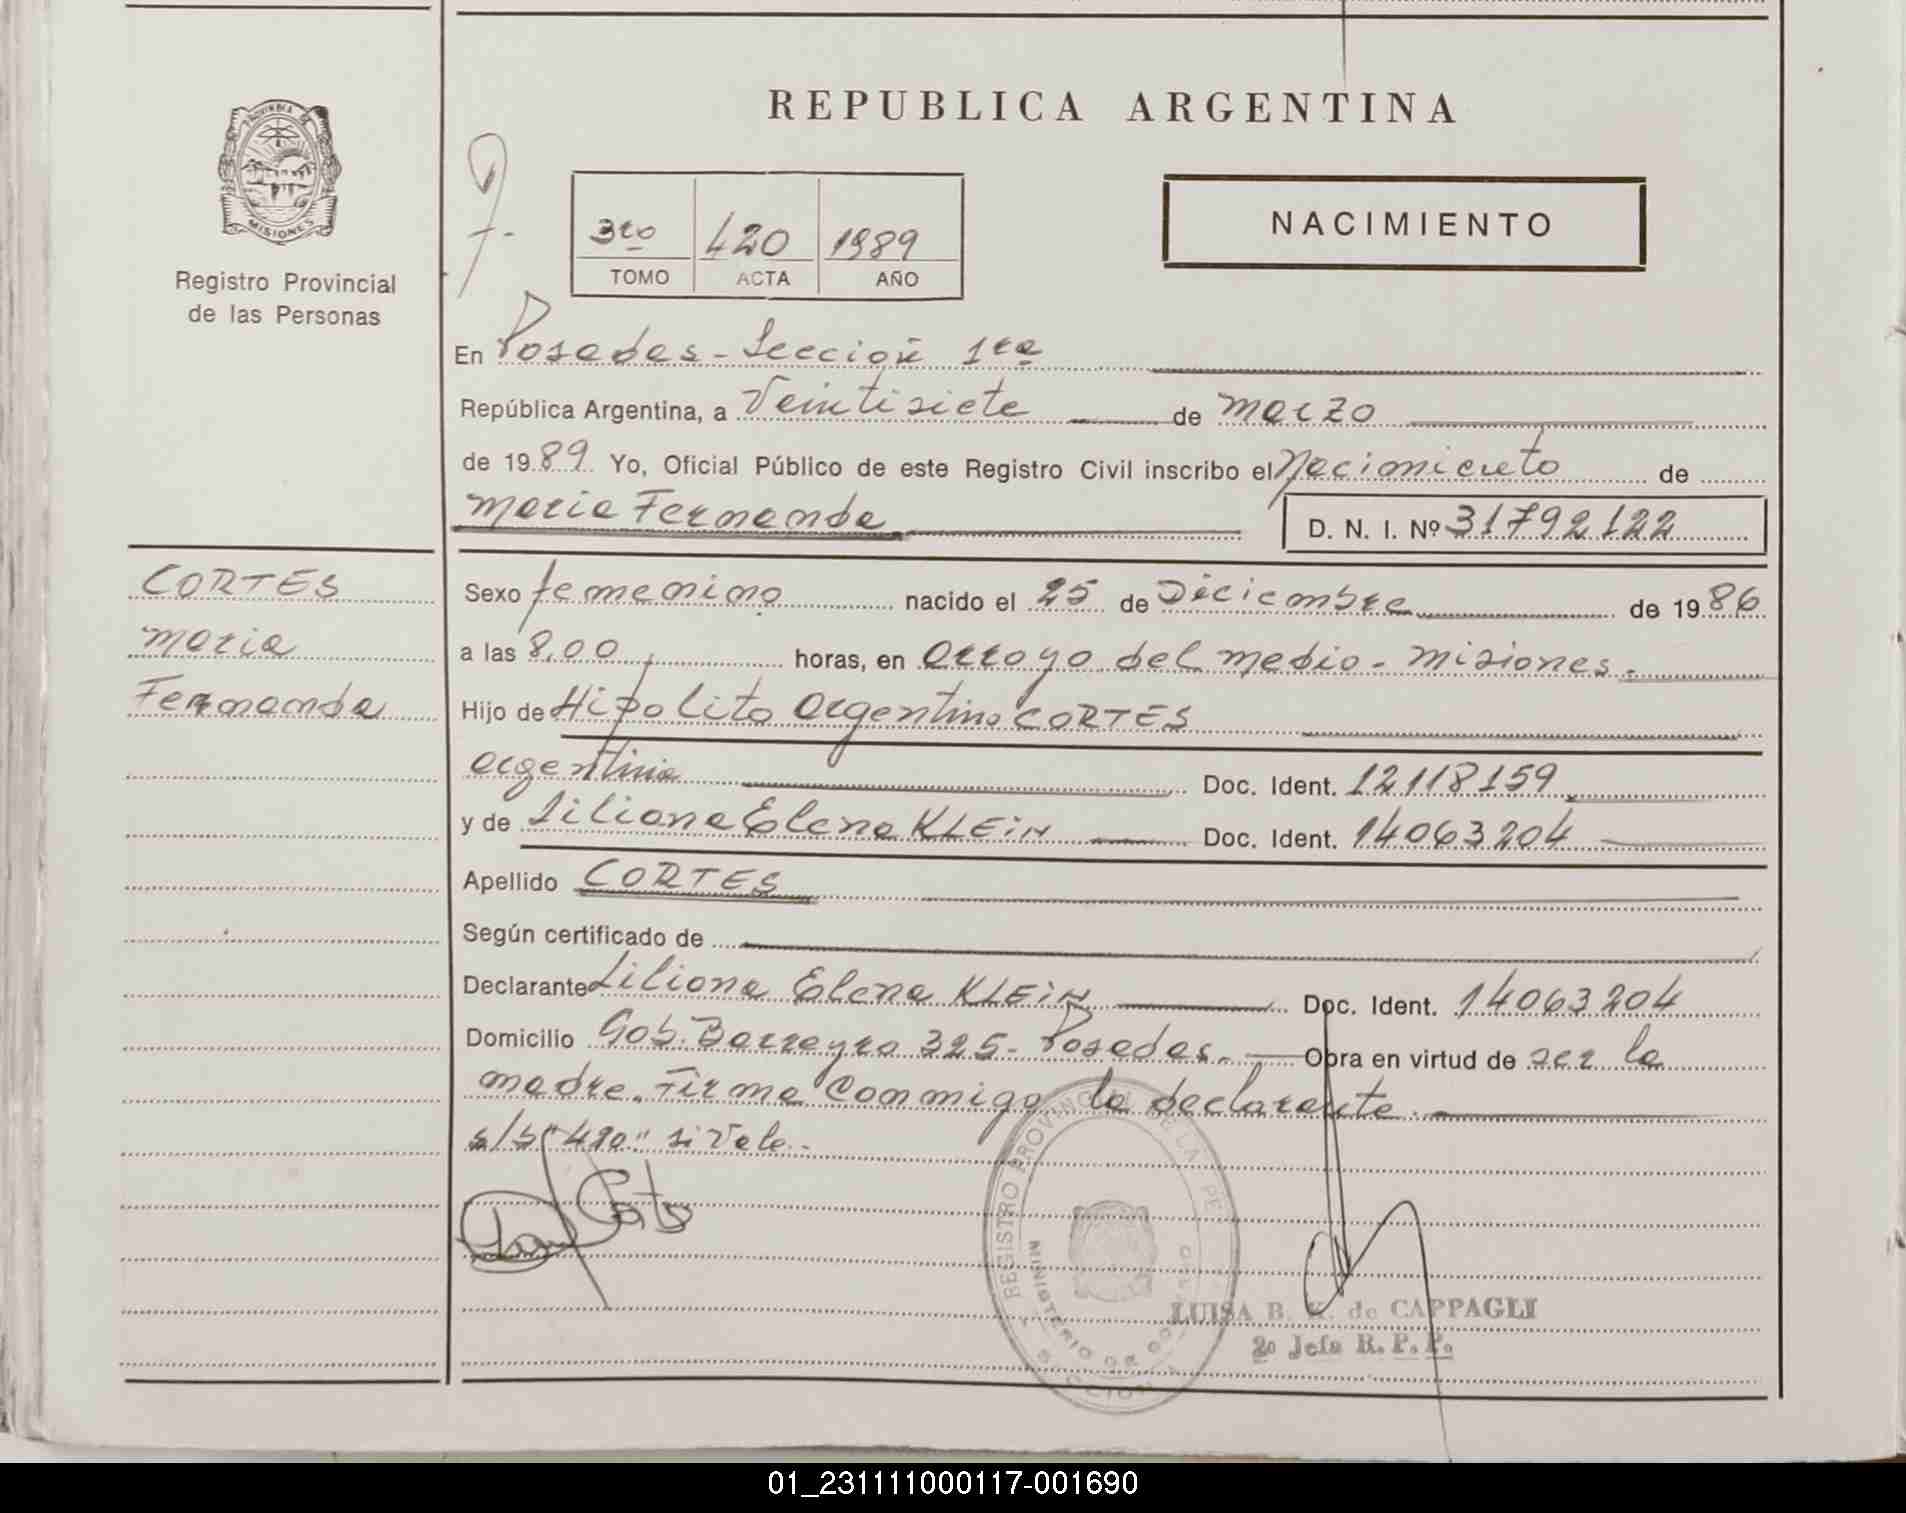 REPUBLICA ARGENTINA
PROVINCIA DE
MISIONES
Registro Provincial
de las Personas
3ro 420 1989
TOMO ACTA AÑO
NACIMIENTO
En Posadas - Sección 1ra
República Argentina, a Veintisiete de marzo
de 1989 Yo, Oficial Público de este Registro Civil inscribo el Nacimiento de
Maria Fernanda
D. N. I. Nº 31792122
CORTES
Maria
Fernanda
Sexo femenino nacido el 25 de Diciembre de 1986
a las 8,00 horas, en Arroyo del medio - Misiones.
Hijo de Hipolito Argentino CORTES
argentina Doc. Ident. 12118159
y de Liliana Elena KLEiN Doc. Ident. 14063204
Apellido CORTES
Según certificado de
Declarante Liliana Elena KLEiN Doc. Ident. 14063204
Domicilio Gob. Barreyro 325 - Posadas. Obra en virtud de ser la
madre. Firma Conmigo la declarante.
s/b "420" si Vale.
REGISTRO PROVINCIAL DE LA PE
MINISTERIO DE GO
LUISA B. K. de CAPPAGLI
2º Jefa R. P. P.
01_231111000117-001690